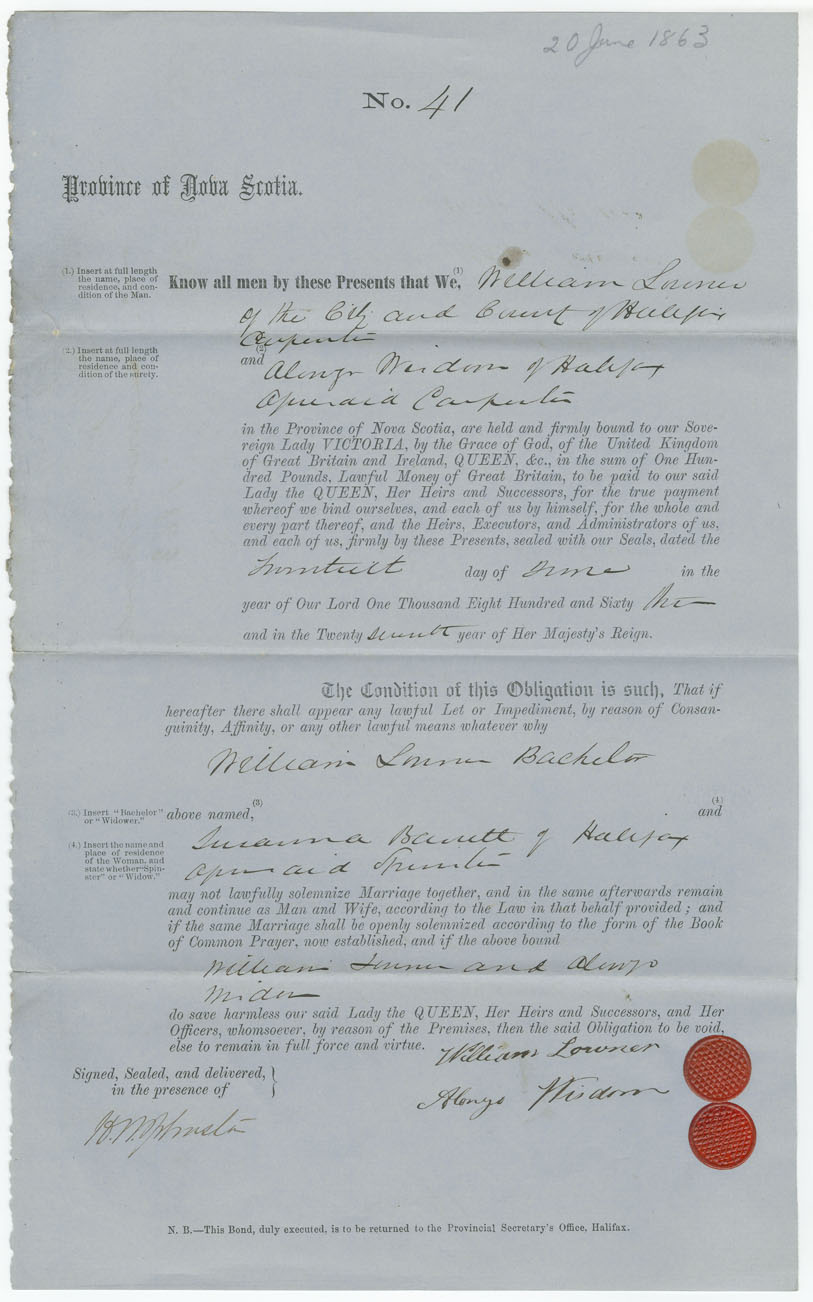 20 June 1863
No. 41
Province of Nova Scotia.
(1.) Insert at full length
the name, place of
residence, and con-
dition of the Man.
Know all men by these Presents that We, (1) William Lowner
of the City and County of Halifax
Carpenter
(2.) Insert at full length
the name, place of
residence and con-
dition of the surety.
and (2) Alonzo Wisdom of Halifax
aforesaid Carpenter
in the Province of Nova Scotia, are held and firmly bound to our Sove-
reign Lady VICTORIA, by the Grace of God, of the United Kingdom
of Great Britain and Ireland, QUEEN, &c., in the sum of One Hun-
dred Pounds, Lawful Money of Great Britain, to be paid to our said
Lady the QUEEN, Her Heirs and Successors, for the true payment
whereof we bind ourselves, and each of us by himself, for the whole and
every part thereof, and the Heirs, Executors, and Administrators of us,
and each of us, firmly by these Presents, sealed with our Seals, dated the
Twentieth day of June in the
year of Our Lord One Thousand Eight Hundred and Sixty three
and in the Twenty seventh year of Her Majesty's Reign.
The Condition of this Obligation is such, That if
hereafter there shall appear any lawful Let or Impediment, by reason of Consan-
guinity, Affinity, or any other lawful means whatever why
William Lowner Bachelor
(3.) Insert "Bachelor"
or "Widower."
above named, (3) and (4)
(4.) Insert the name and
place of residence
of the Woman, and
state whether "Spin-
ster" or "Widow."
Susanna Barrett of Halifax
aforesaid Spinster
may not lawfully solemnize Marriage together, and in the same afterwards remain
and continue as Man and Wife, according to the Law in that behalf provided; and
if the same Marriage shall be openly solemnized according to the form of the Book
of Common Prayer, now established, and if the above bound
William Lowner and Alonzo
Wisdom
do save harmless our said Lady the QUEEN, Her Heirs and Successors, and Her
Officers, whomsoever, by reason of the Premises, then the said Obligation to be void,
else to remain in full force and virtue.
William Lowner
Signed, Sealed, and delivered,
in the presence of
Alonzo Wisdom
N. B.—This Bond, duly executed, is to be returned to the Provincial Secretary's Office, Halifax.